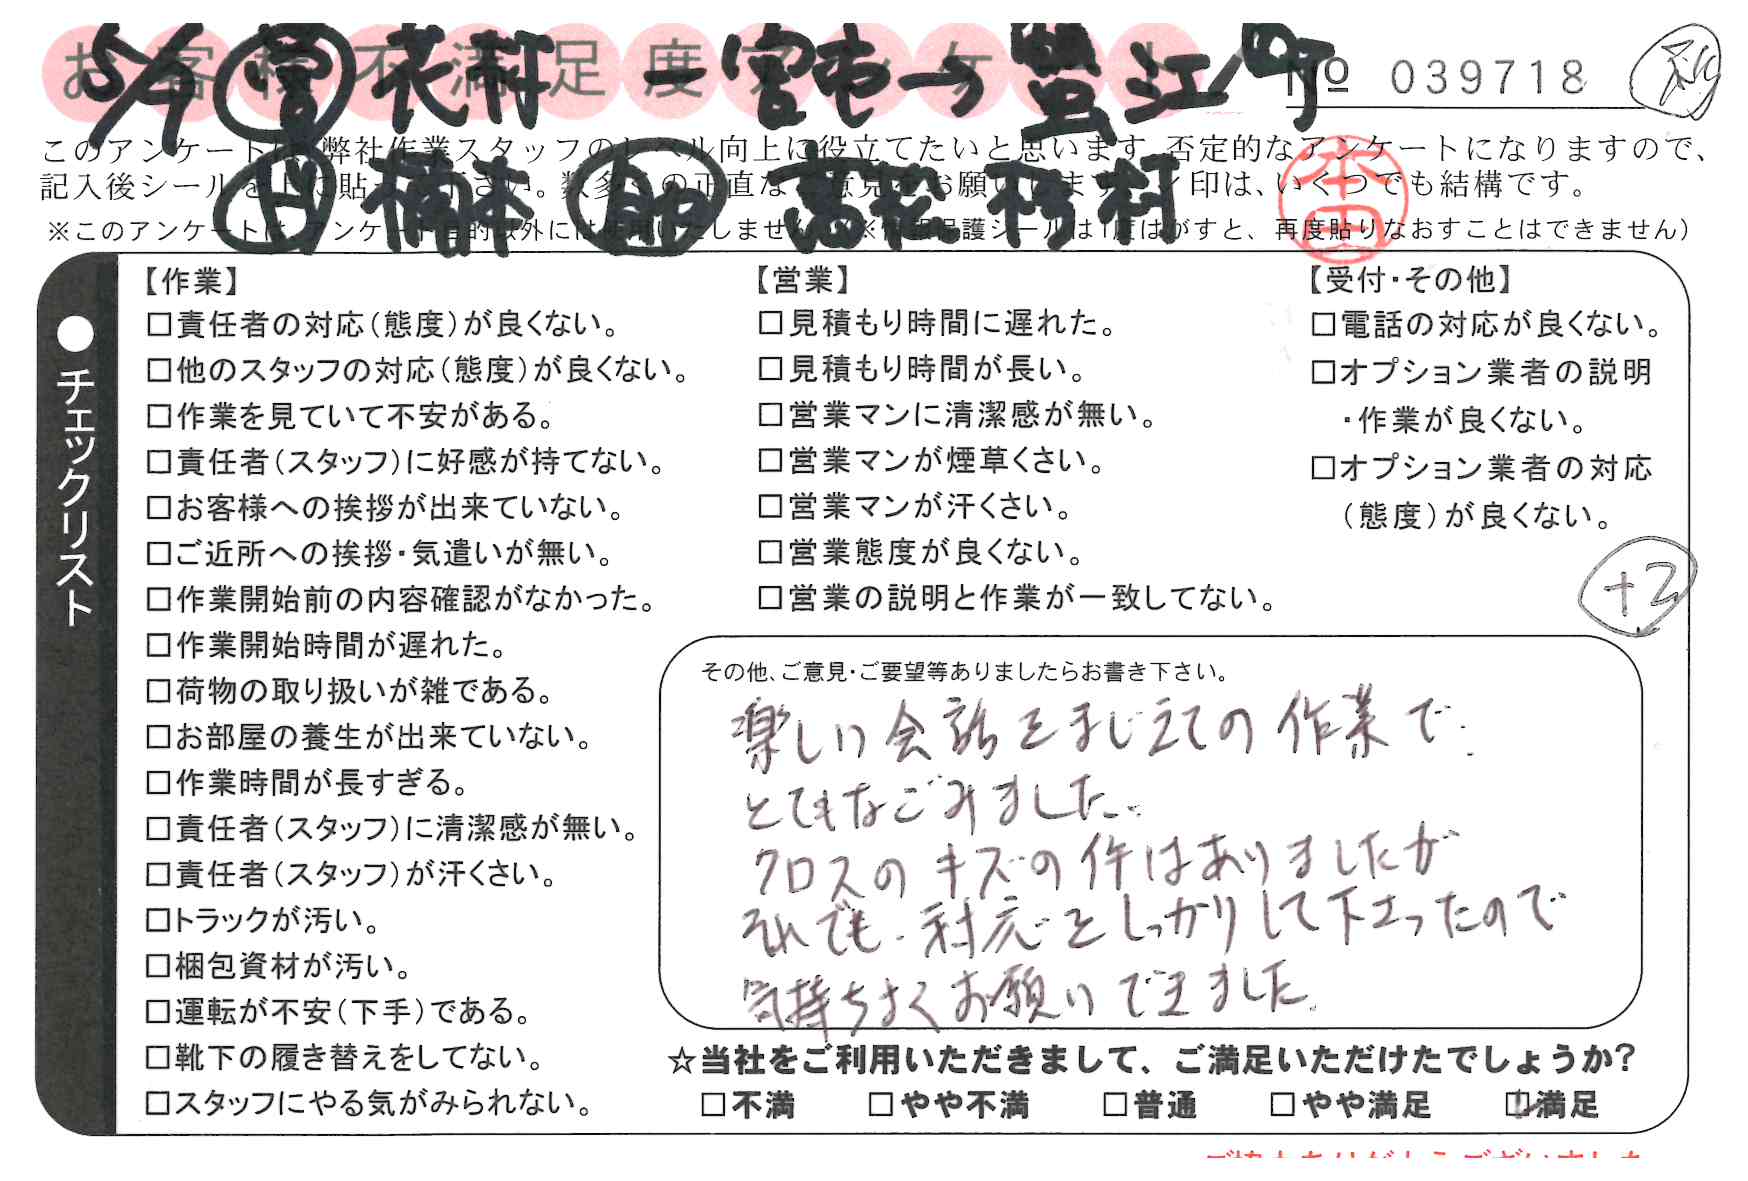 お客様不満足度アンケート
5/9 営 衣村 一宮市→蟹江町
№ 039718
このアンケートは、弊社作業スタッフのレベル向上に役立てたいと思います。否定的なアンケートになりますので、
記入後シールを上に貼って下さい。数多くの正直なご意見をお願いします。ペン印は、いくつでも結構です。
橋本 助 高松 杉村
本田
※このアンケートは、アンケート目的以外には使用いたしません。(※情報保護シールは1度はがすと、再度貼りなおすことはできません)
●チェックリスト
【作業】
□責任者の対応(態度)が良くない。
□他のスタッフの対応(態度)が良くない。
□作業を見ていて不安がある。
□責任者(スタッフ)に好感が持てない。
□お客様への挨拶が出来ていない。
□ご近所への挨拶・気遣いが無い。
□作業開始前の内容確認がなかった。
□作業開始時間が遅れた。
□荷物の取り扱いが雑である。
□お部屋の養生が出来ていない。
□作業時間が長すぎる。
□責任者(スタッフ)に清潔感が無い。
□責任者(スタッフ)が汗くさい。
□トラックが汚い。
□梱包資材が汚い。
□運転が不安(下手)である。
□靴下の履き替えをしてない。
□スタッフにやる気がみられない。
【営業】
□見積もり時間に遅れた。
□見積もり時間が長い。
□営業マンに清潔感が無い。
□営業マンが煙草くさい。
□営業マンが汗くさい。
□営業態度が良くない。
□営業の説明と作業が一致してない。
【受付・その他】
□電話の対応が良くない。
□オプション業者の説明
・作業が良くない。
□オプション業者の対応
(態度)が良くない。
+2
その他、ご意見・ご要望等ありましたらお書き下さい。
楽しい会話をまじえての作業で
とてもなごみました。
クロスのキズの件はありましたが
それでも対応をしっかりして下さったので
気持ちよくお願いできました。
☆当社をご利用いただきまして、ご満足いただけたでしょうか?
□不満 □やや不満 □普通 □やや満足 ☑満足